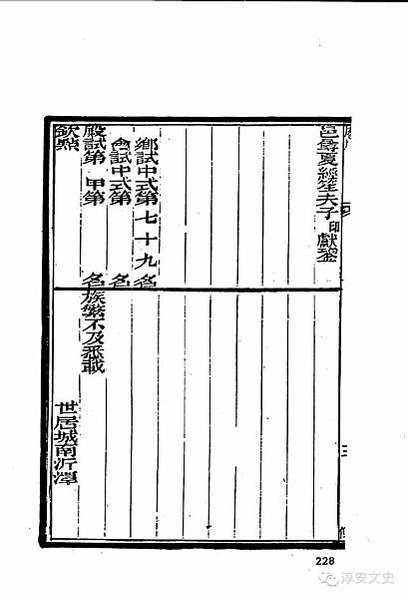 邑尊夏經笙夫子印獻
鄉試中式第七十九名
會試中式第 名
殿試第 甲第 名
欽點
族繁不及悉載
世居城南沂潭
三
228
淳安文史